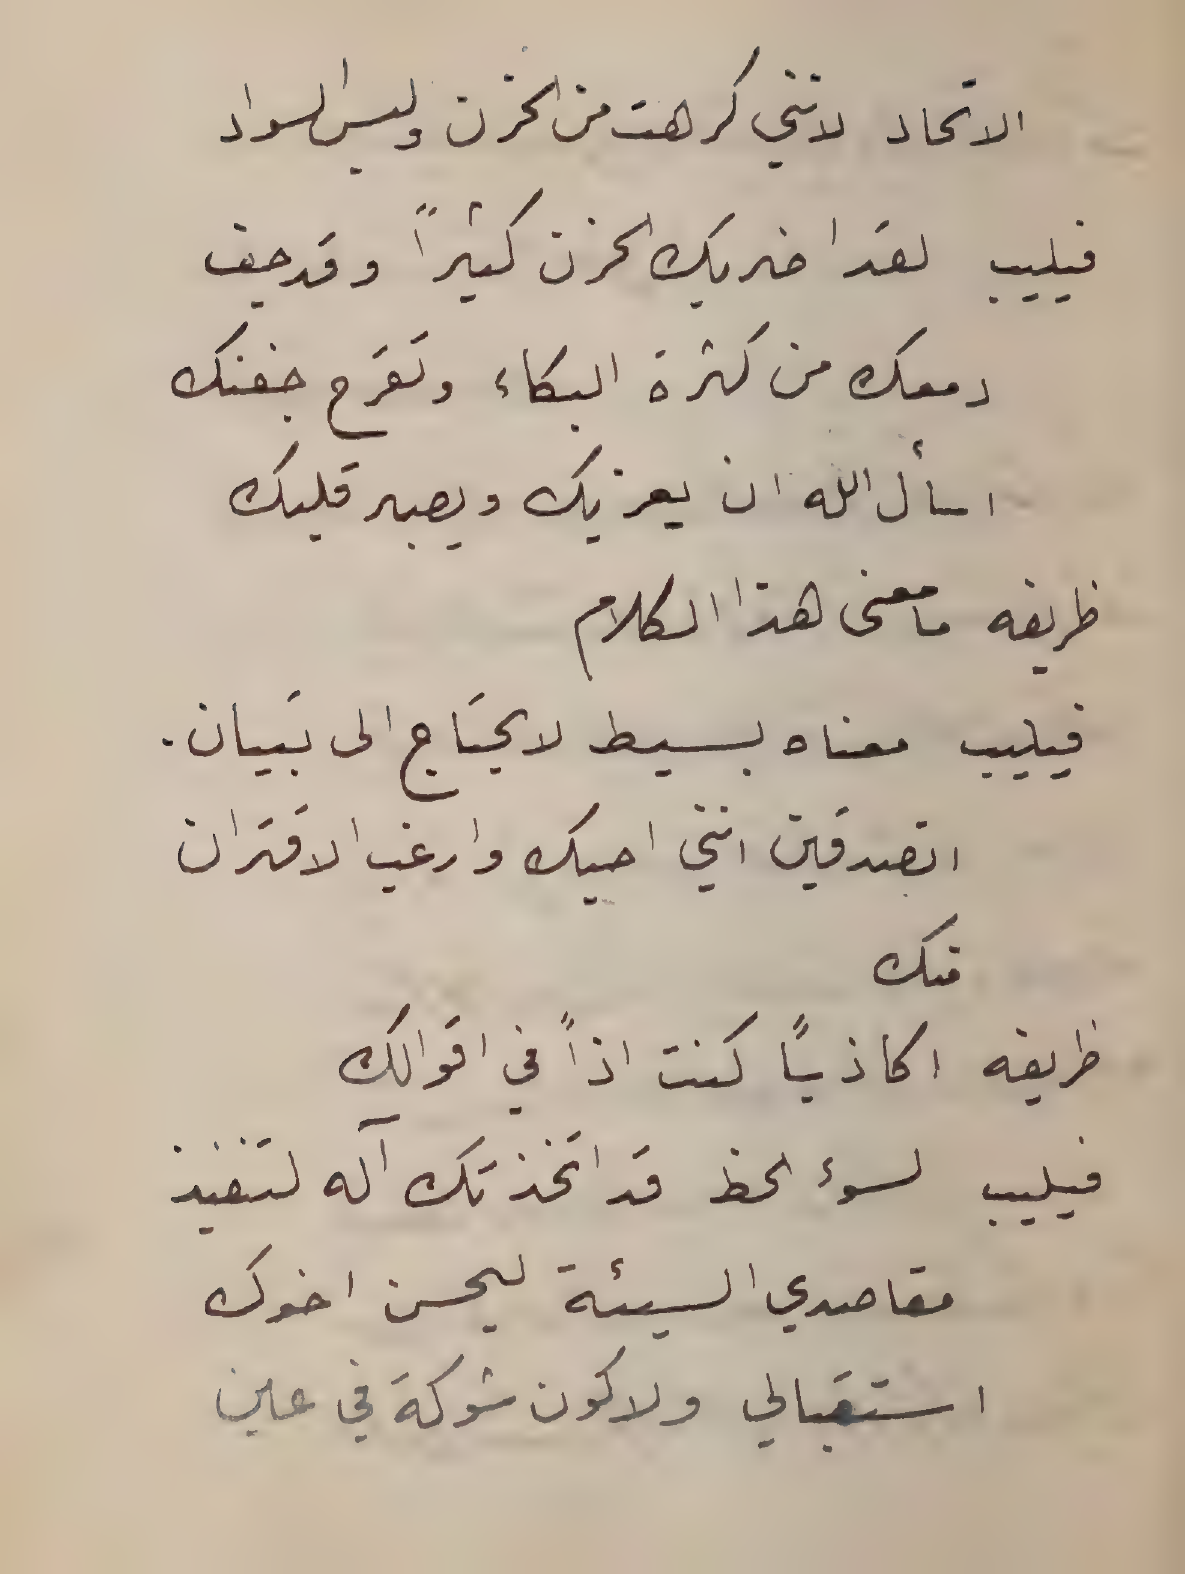 الاتحاد لانني كرهت من الحزن ولبس السواد
فيليب لقد اضر بك الحزن كثيراً وقد جف
دمعك من كثرة البكاء وتقرح جفنك
اسأل الله ان يعزيك ويصبر قلبك
ظريفه ما معنى هذا الكلام
فيليب معناه بسيط لا يحتاج الى تبيان.
اتصدقين انني احبك وارغب الاقتران
منك
ظريفه اكاذباً كنت اذاً في اقوالك
فيليب لسوء الحظ قد اتخذتك آله لتنفيذ
مقاصدي السيئة ليحسن اخوك
استقبالي ولاكون شوكة في عين